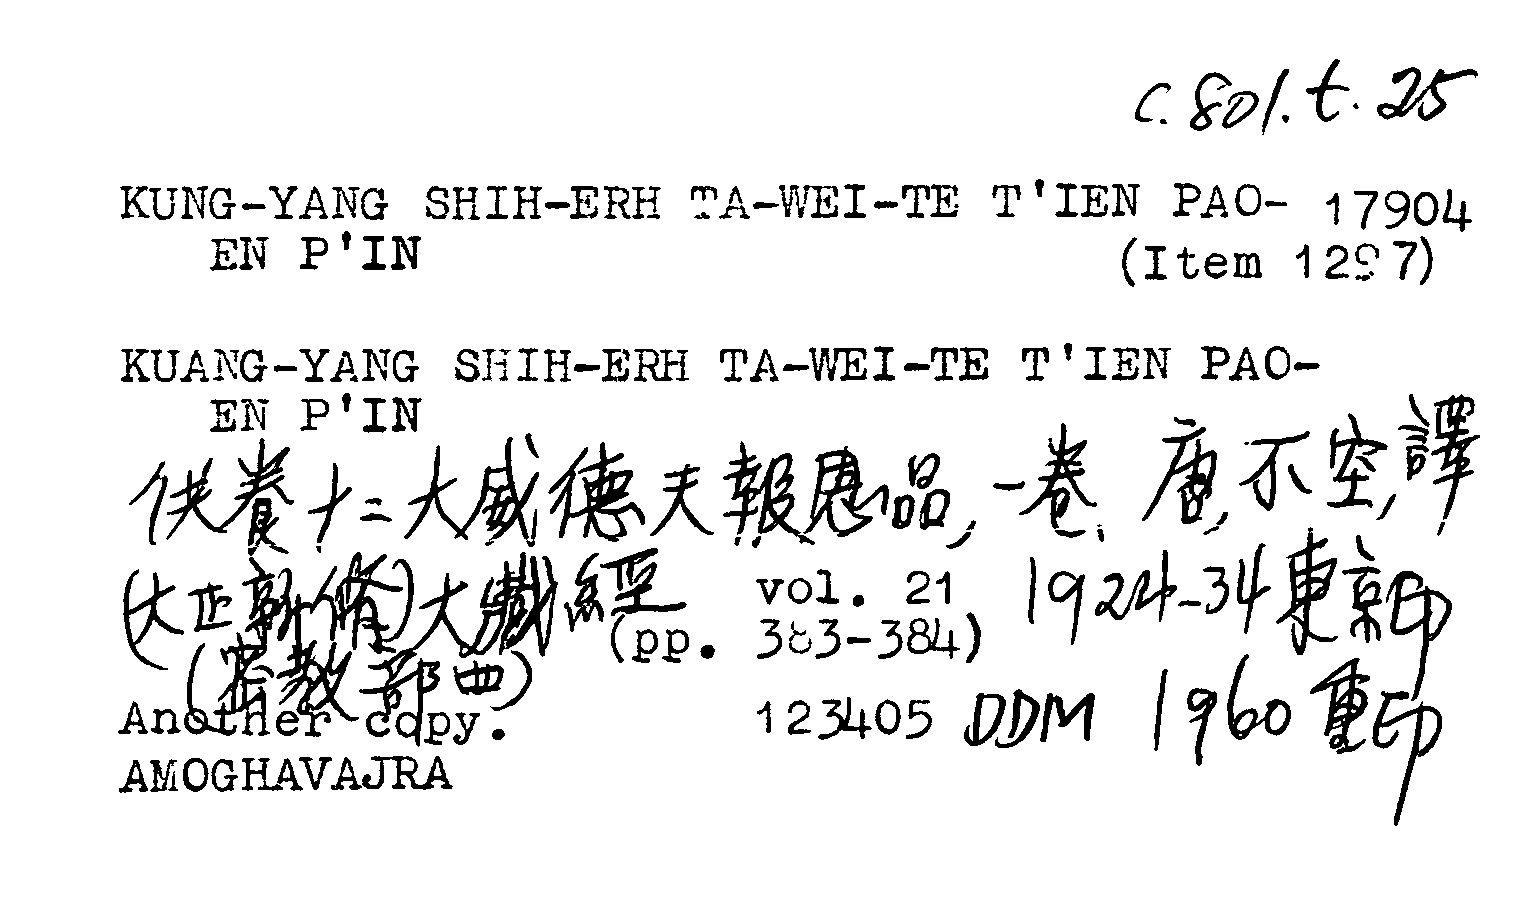 C. 801. t. 25
KUNG-YANG SHIH-ERH TA-WEI-TE T'IEN PAO- 17904
EN P'IN (Item 1297)
KUANG-YANG SHIH-ERH TA-WEI-TE T'IEN PAO-
EN P'IN
供養十二大威德天報恩品, 一卷, 唐, 不空, 譯
(大正新脩)大藏經 vol. 21 1924-34 東京印
(密教部四) (pp. 383-384)
Another copy. 123405 DDM 1960 重印
AMOGHAVAJRA